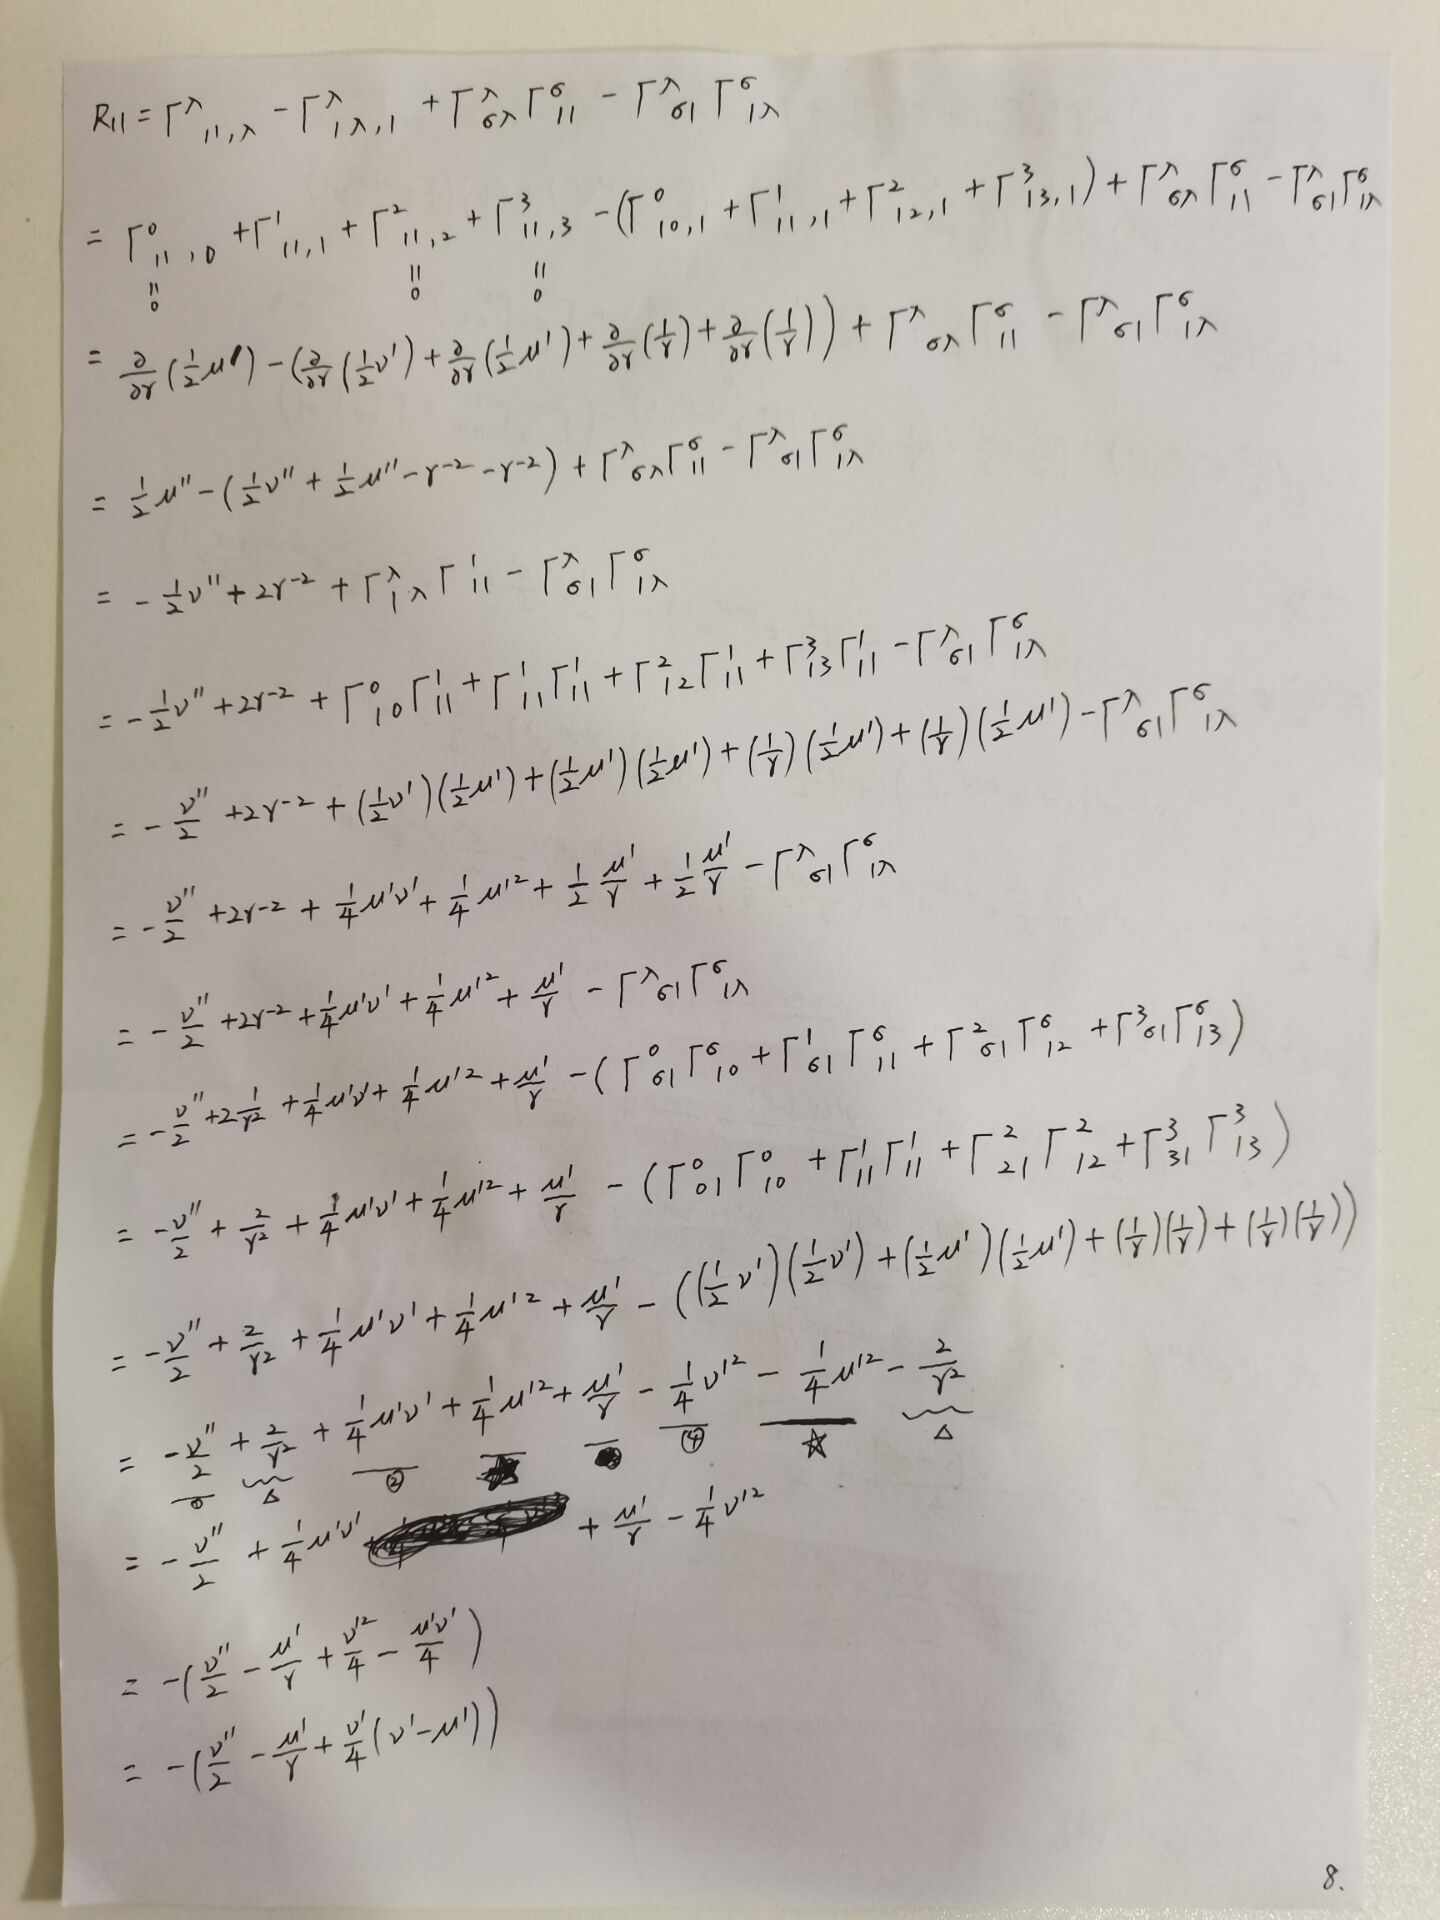 R₁₁ = Γ^λ_{11,λ} − Γ^λ_{1λ,1} + Γ^λ_{σλ} Γ^σ_{11} − Γ^λ_{σ1} Γ^σ_{1λ}
= Γ^0_{11,0} + Γ^1_{11,1} + Γ^2_{11,2} + Γ^3_{11,3} − (Γ^0_{10,1} + Γ^1_{11,1} + Γ^2_{12,1} + Γ^3_{13,1}) + Γ^λ_{σλ} Γ^σ_{11} − Γ^λ_{σ1} Γ^σ_{1λ}
|| 0 || 0 || 0
= ∂/∂r (1/2 μ') − (∂/∂r (1/2 ν') + ∂/∂r (1/2 μ') + ∂/∂r (1/r) + ∂/∂r (1/r)) + Γ^λ_{σλ} Γ^σ_{11} − Γ^λ_{σ1} Γ^σ_{1λ}
= 1/2 μ'' − (1/2 ν'' + 1/2 μ'' − r⁻² − r⁻²) + Γ^λ_{σλ} Γ^σ_{11} − Γ^λ_{σ1} Γ^σ_{1λ}
= − 1/2 ν'' + 2r⁻² + Γ^λ_{1λ} Γ^1_{11} − Γ^λ_{σ1} Γ^σ_{1λ}
= − 1/2 ν'' + 2r⁻² + Γ^0_{10} Γ^1_{11} + Γ^1_{11} Γ^1_{11} + Γ^2_{12} Γ^1_{11} + Γ^3_{13} Γ^1_{11} − Γ^λ_{σ1} Γ^σ_{1λ}
= − ν''/2 + 2r⁻² + (1/2 ν')(1/2 μ') + (1/2 μ')(1/2 μ') + (1/r)(1/2 μ') + (1/r)(1/2 μ') − Γ^λ_{σ1} Γ^σ_{1λ}
= − ν''/2 + 2r⁻² + 1/4 μ'ν' + 1/4 μ'² + 1/2 μ'/r + 1/2 μ'/r − Γ^λ_{σ1} Γ^σ_{1λ}
= − ν''/2 + 2r⁻² + 1/4 μ'ν' + 1/4 μ'² + μ'/r − Γ^λ_{σ1} Γ^σ_{1λ}
= − ν''/2 + 2 1/r² + 1/4 μ'ν' + 1/4 μ'² + μ'/r − (Γ^0_{σ1} Γ^σ_{10} + Γ^1_{σ1} Γ^σ_{11} + Γ^2_{σ1} Γ^σ_{12} + Γ^3_{σ1} Γ^σ_{13})
= − ν''/2 + 2/r² + 1/4 μ'ν' + 1/4 μ'² + μ'/r − (Γ^0_{01} Γ^0_{10} + Γ^1_{11} Γ^1_{11} + Γ^2_{21} Γ^2_{12} + Γ^3_{31} Γ^3_{13})
= − ν''/2 + 2/r² + 1/4 μ'ν' + 1/4 μ'² + μ'/r − ((1/2 ν')(1/2 ν') + (1/2 μ')(1/2 μ') + (1/r)(1/r) + (1/r)(1/r))
= − ν''/2 + 2/r² + 1/4 μ'ν' + 1/4 μ'² + μ'/r − 1/4 ν'² − 1/4 μ'² − 2/r²
△ ② ④ ☆ △
= − ν''/2 + 1/4 μ'ν' + μ'/r − 1/4 ν'²
= −(ν''/2 − μ'/r + ν'²/4 − μ'ν'/4)
= −(ν''/2 − μ'/r + ν'/4 (ν' − μ'))
8.